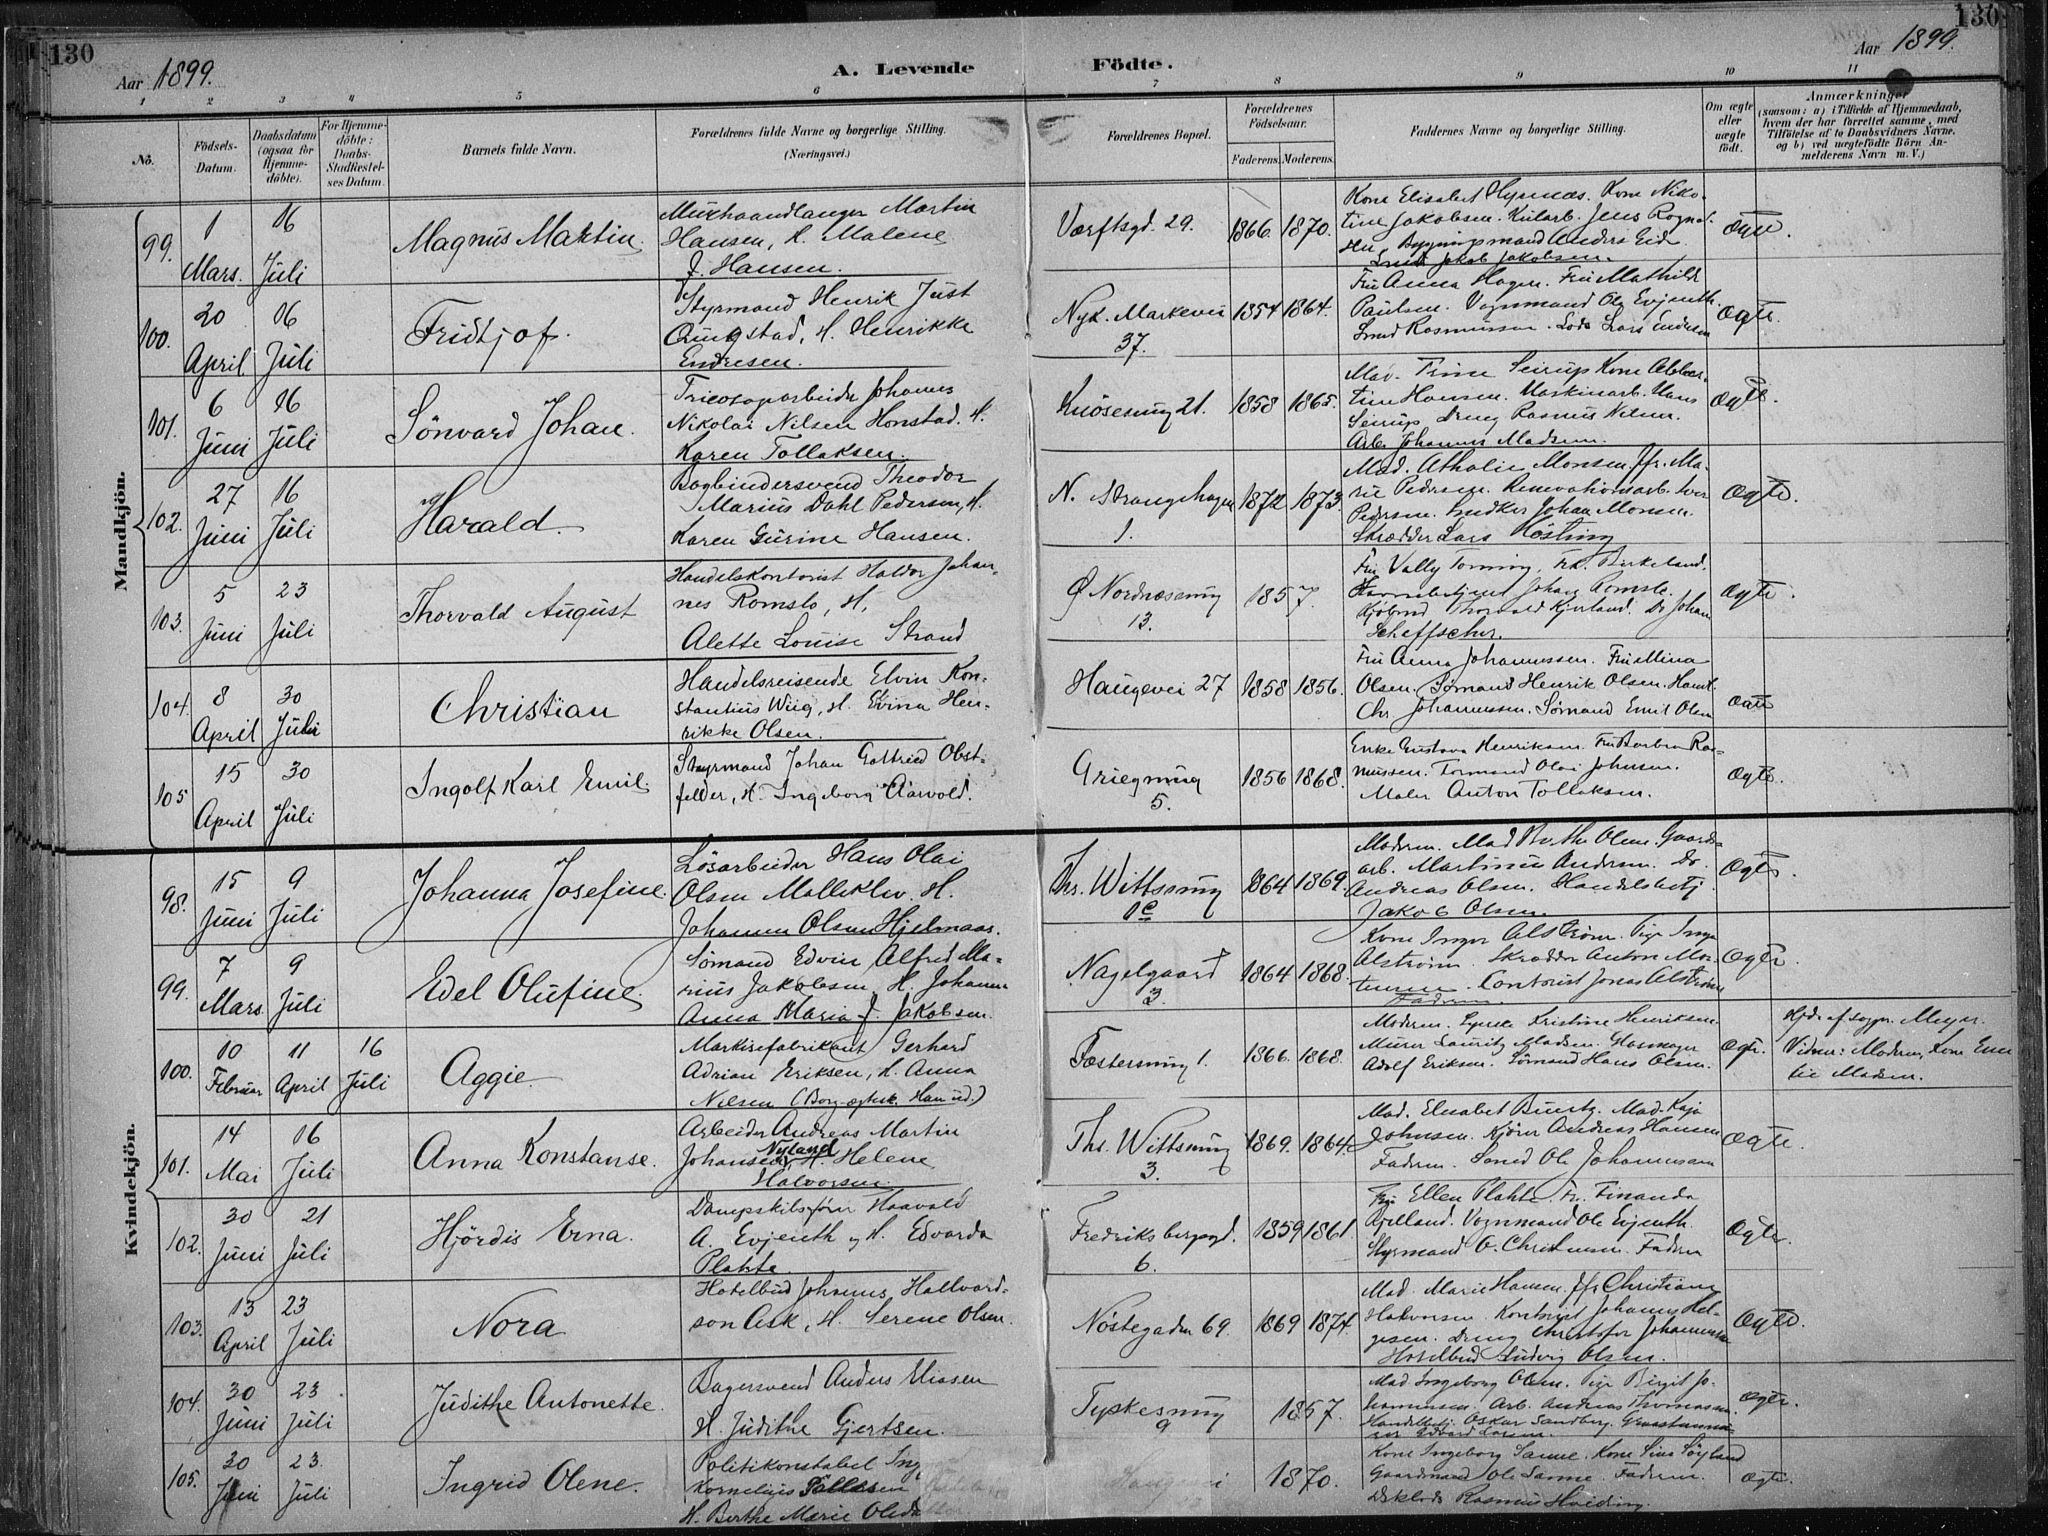 130
Aar 1899.
A. Levende
Födte.
Aar 1899.
130
1 2 3 4 5 6 7 8 9 10 11
No.
Födsels-Datum.
Daabsdatum (ogsaa for Hjemme-döbte).
For Hjemme-döbte: Daabs-Stadfæstel-ses Datum.
Barnets fulde Navn.
Forældrenes fulde Navne og borgerlige Stilling.
(Næringsvei.)
Forældrenes Bopæl.
Forældrenes Födselsaar.
Faderens. Moderens.
Faddernes Navne og borgerlige Stilling.
Om ægte eller uægte födt.
Anmærkninger
(saasom: a) i Tilfælde af Hjemmedaab, hvem der har forrettet samme, med Tilföielse af to Daabsvidners Navne, og b) ved uægtefödte Börn An-melderens Navn m. V.)
Mandkjön.
99. 1 Mars. 16 Juli
Magnus Martin.
Murhaandlanger Martin
Hansen, H. Malene
J. Hansen.
Værftsgd. 29. 1866. 1870.
Kone Elisabet Kone Niko-
tine Jakobsen. Jens
Anders Eide
Jakob Jakobsen.
ægte.
100. 20 April 16 Juli
Fridtjof.
Styrmand Henrik Just
Quigstad, H. Henrikke
Endresen.
Nyk. Markevei 37. 1854 1864.
Fru Anna Hagen. Fru Mathilde
Paulsen. Vognmand Ole Evjenth.
Rasmussen. Lods Lars Endresen
ægte.
101. 6 Juni 16 Juli
Sönvard Johan.
Tricotagarbeider Johannes
Nikolai Nilsen Honstad. H.
Karen Tollaksen.
Knösesmug 21. 1858 1865.
Mad. Seirup Kone
Hansen. Maskinarb. Hans
Seirup. Dreng Rasmus
Arb. Johannes Madsen.
ægte.
102. 27 Juni 16 Juli
Harald.
Bogbindersvend Theodor
Marius Dahl Pedersen, H.
Karen Gurine Hansen.
N. Strangehagen 1. 1872 1873.
Mad. Athalie Monsen Jfr. Ma-
rie Pedersen. Renovationsarb. Iver
Pedersen. Johan Monsen.
Skrædder Lars Kösting
ægte.
103. 5 Juni 23 Juli
Thorvald August
Handelskontorist Haldor Johan-
nes Romslo, H.
Alette Louise Strand
Ø Nordnæsmug 13. 1857.
Fru Vally Torning. Frk. Birkeland.
Johan Romslo.
Thorvald Do Johan
ægte.
104. 8 April 30 Juli
Christian
Handelsreisende Elvin Kon-
stantius Wiig, H. Elvina Hen-
rikke Olsen.
Haugevei 27 1858 1856.
Fru Anna Johannessen. Fru Mina
Olsen. Sömand Henrik Olsen.
Chr. Johannessen. Sömand Emil Olsen
ægte
105 15 April 30 Juli
Ingolf Karl Emil.
Styrmand Johan Gottfried Obst-
felder, H. Ingeborg Aarvold.
Griegsmug 5. 1856 1868.
Enke Gustava Henriksen. Fru Barbra Ras-
mussen. Formand Olai Johnsen.
Maler Anton Tollaksen.
ægte.
Kvindekjön.
98. 15 Juni 9 Juli
Johanna Josefine.
Lösarbeider Hans Olai
Olsen Malleklev. H.
Johanne Olsen Hjelmaas.
Ths. Wittssmug 1c 1864 1869.
Moderen. Mad Berthe Olsen. Gaards-
arb. Martinius Andersen. Do.
Andreas Olsen. Handelsbetj.
Jakob Olsen.
ægte
99. 7 Mars. 9 Juli
Edel Olufine.
Sömand Edvin Alfred Ma-
rius Jakobsen. H. Johanne
Anna Maria J. Jakobsen.
Nagelgaard 3. 1864 1868.
Kone Inger Alström. Pige Inga
Alström. Skrædder Anton Mor-
tensen. Contorist Jonas Alström
Faderen.
ægte.
100. 10 Februar 11 April 16 Juli
Aggie.
Markisefabrikant Gerhard
Adrian Eriksen, H. Anna
Nilsen (Borg. ægtesk. Han ud.)
Fostersmug 1. 1866. 1868.
Moderen. Kristine Henriksen.
Murer Lauritz Madsen. Glasmager
Adolf Eriksen. Sömand Hans Olsen.
ægte.
Hjd. af sogpr. Meyer.
Vidner: Moderen, Kone Emi-
lie Madsen.
101. 14 Mai 16 Juli
Anna Konstanse.
Arbeider Andreas Martin
Johansen Nyland H. Helene
Halvorsen.
Ths. Wittssmug 3. 1869. 1864
Mad. Elisabet Mad. Kaja
Johnsen. Andreas Hansen
Faderen. Ole Johannesen
ægte.
102. 30 Juni 21 Juli
Hjördis Erna.
Dampskibsförer Haavald
A. Evjenth og H. Edvarda
Plahte.
Fredriksbergsgd. 6. 1859 1861.
Fru Ellen Plahte. Fr. Finanda
Vognmand Ole Evjenth.
Styrmand O. Christensen. Faderen
ægte.
103. 13 April 23 Juli
Nora
Hotelbud Johannes Hallvard-
son Ask, H. Serene Olsen.
Nöstegaden 69. 1869 1874.
Mad. Marie Hansen. Jfr. Christiane
Halvorsen. Johannes Hel-
gesen. Dreng Christofer Johannessen
Hotelbud Ludvig Olsen.
ægte.
104. 30 Juni 23 Juli
Judithe Antonette.
Bagersvend Anders Miasen
H. Judithe Gjertsen.
Tyskesmug 9 1857.
Mad Ingeborg Olsen. Pige Birgit Jo-
hannessen. Arb. Andreas Thomassen.
Handelbetj. Oskar Sandberg.
Edvard Larsen.
ægte.
105. 30 Juni 23. Juli
Ingrid Olene.
Politikonstabel Ing
Kornelius
H. Berthe Marie
1870.
Kone Ingeborg Sanne. Kone
Gaardmand Ole Sanne. Faderen.
Rasmus
ægte.